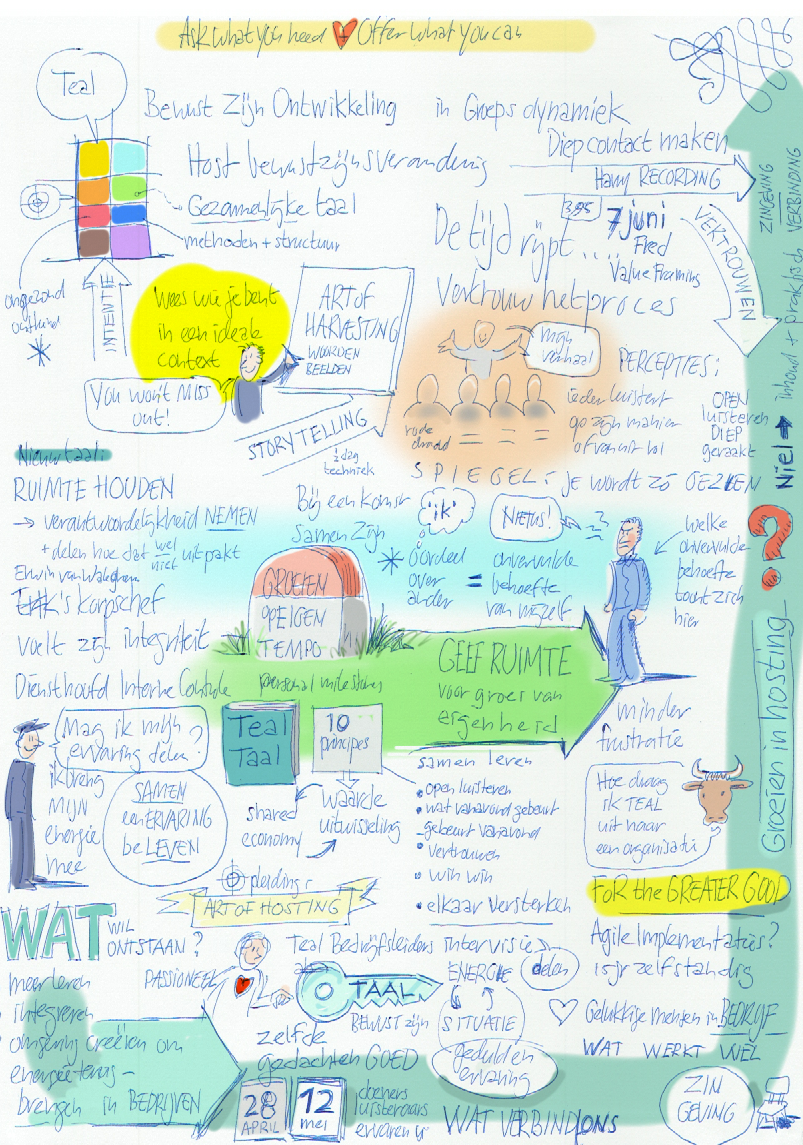 Ask what you need + Offer what you can
Teal
Bewust Zijn Ontwikkeling in Groeps dynamiek
Diep contact maken
Host bewustzijnsverandering
Harry RECORDING
Gezamenlijke taal
methoden + structuur
ongezond
INTENTIE
De tijd rijpt....
7 juni
Fred
Value Framing
Vertrouw het proces
VERTROUWEN
ZINGEVING
VERBINDING
inhoud + praktisch
Niel
Groeien in hosting
?
Wees wie je bent
in een ideale
context
ART OF
HARVESTING
WOORDEN
BEELDEN
You won't MISS
out!
STORYTELLING
½ dag
techniek
mijn
verhaal
PERCEPTIES:
ieder luistert
op zijn manier
of vanuit rol
rode
draad
OPEN
luisteren
DIEP
geraakt
SPIEGEL: je wordt zó GEZIEN
Nieuw taal:
RUIMTE HOUDEN
→ verantwoordelijkheid NEMEN
+ delen hoe dat wel
niet uitpakt
korpschef
voelt zijn integriteit
Diensthoofd Interne Controle
Bij een komst
samen zijn
'ik'
NIETUS!
oordeel
over
ander
=
onvervulde
behoefte
van mijzelf
welke
onvervulde
behoefte
toont zich
hier
GROEIEN
OP EIGEN
TEMPO
GEEF RUIMTE
voor groei van
eigenheid
personal milestones
minder
frustratie
Mag ik mijn
ervaring delen?
ik breng
MIJN
energie
mee
SAMEN
een ERVARING
beLEVEN
Teal
Taal
10
principes
shared
economy
waarde
uitwisseling
samen leren
• open luisteren
• wat vanavond gebeurt
- gebeurt vanavond
• vertrouwen
• win win
• elkaar versterken
Hoe draag
ik TEAL
uit naar
een organisatie
Opleiding:
ART OF HOSTING
FOR the GREATER GOOD
WAT WIL
ONTSTAAN?
meer leren
integreren
omgeving creëren om
brengen in BEDRIJVEN
PASSIONEEL
Teal Bedrijfsleiders intervisie
TAAL
BEWUST zijn
ENERGIE delen
SITUATIE
geduld en
ervaring
zelfde
gedachten GOED
28
APRIL
12
mei
doeners
luisteraars
WAT VERBIND ONS
Agile Implementaties?
zelfstandig
Gelukkige mensen in BEDRIJF
WAT WERKT WEL
ZIN
GEVING